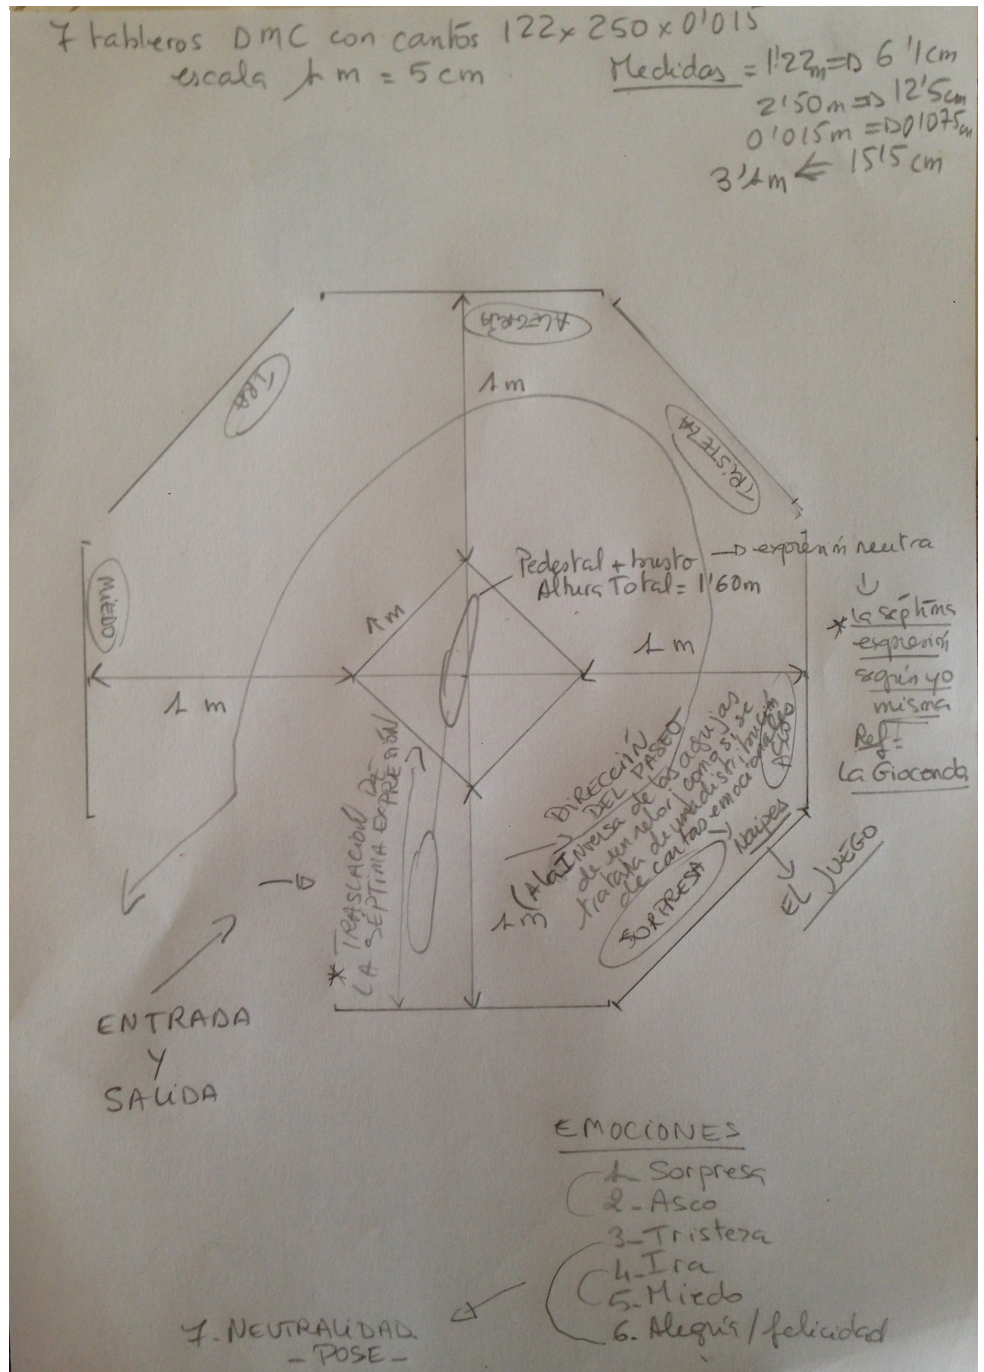 7 tableros DMC con cantos 122 x 250 x 0'015
escala 1 m = 5 cm
Medidas = 1'22m => 6'1cm
2'50m => 12'5cm
0'015m => 0'075cm
3'1m <= 15'5 cm
ALEGRÍA
IRA
1 m
TRISTEZA
Pedestal + busto -> expresión neutra
Altura Total = 1'60m
MIEDO
1 m
* la séptima
expresión
según yo
misma
Ref:
La Gioconda
1 m
1 m
ASCO
* TRASLACIÓN DE
LA SÉPTIMA EXPRESIÓN
DIRECCIÓN
DEL PASEO
(A la Inversa de las agujas
de un reloj, como si se
tratara de una distribución
de cartas emocionales
Naipes
EL JUEGO
SORPRESA
ENTRADA
Y
SALIDA
EMOCIONES
1- Sorpresa
2- Asco
3- Tristeza
4- Ira
5- Miedo
6- Alegría / felicidad
7- NEUTRALIDAD
- POSE -